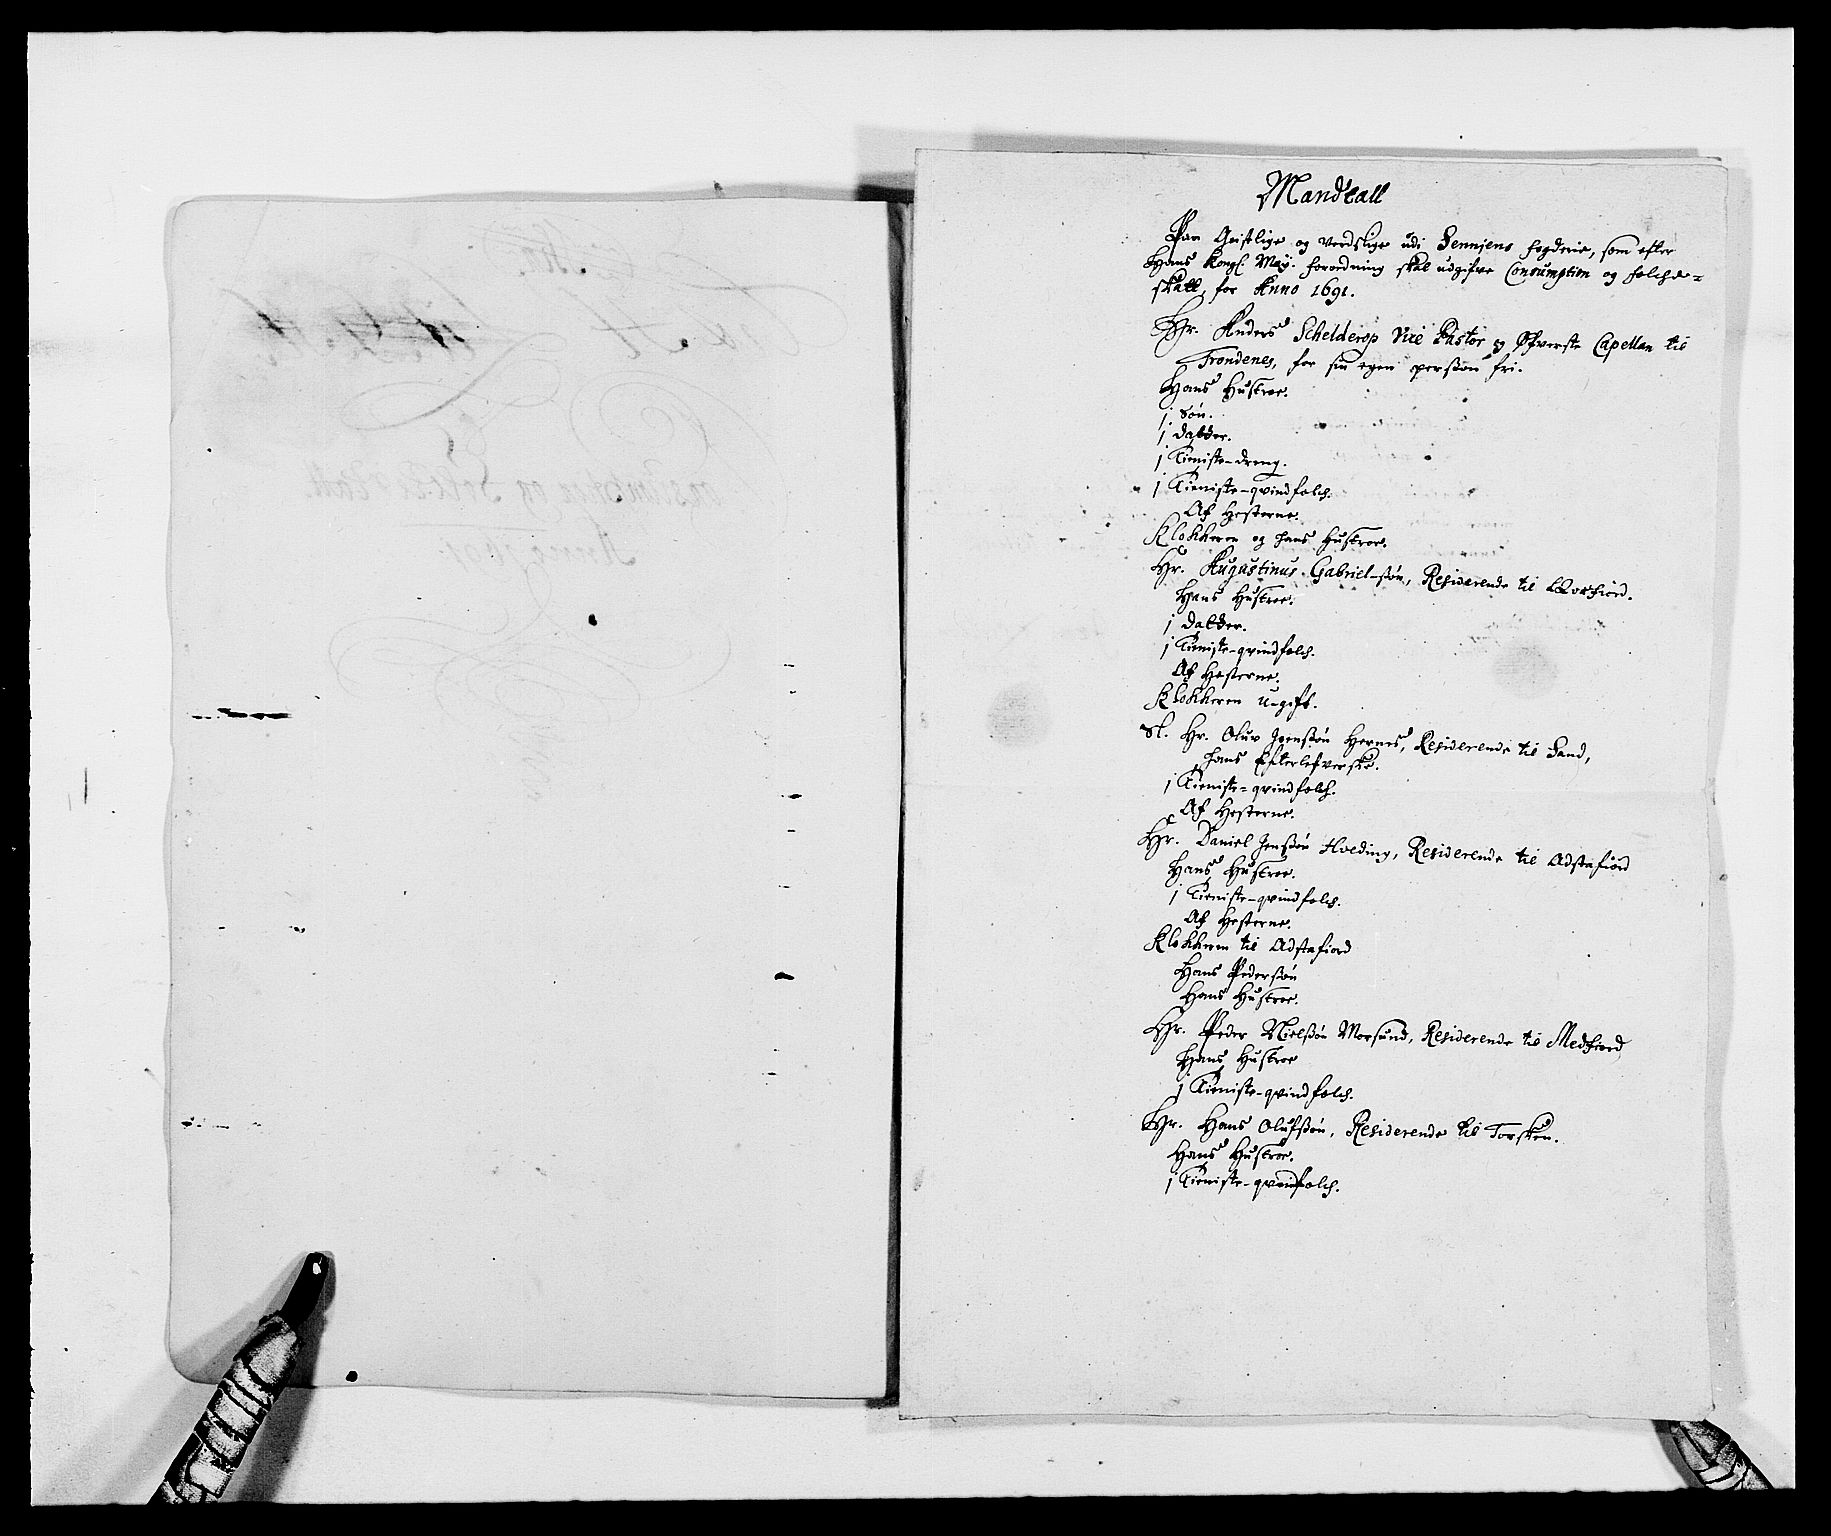 Mandtall
Paa Geistlige og Verdslige udi Sennjens fogderie, som efter
Hans Kongl. May. forordning skal udgifve Consumption og folche-
skatt, for Anno 1691.
Hr. Anders Schelderop Vice Pastor og Øfverste Capellan til
Trondenes, for sin egen perssón fri.
Hans Hustroe.
j Søn.
j datter.
j Tieniste-dreng.
j Tieniste-qvindfolch.
Af Hesterne.
Klokkeren og hans Hustroe.
Hr. Augustinus Gabriel-søn, Residerende til Qvæfiord.
Hans Hustroe.
j datter.
j Tieniste-qvindfolch.
Af Hesterne.
Klokkeren u-gift.
Sl. Hr. Oluv Jenssøn Hernes, Residerende til Sand,
hans Efterlefverske.
j Tieniste-qvindfolch.
Af Hesterne.
Hr. Daniel Jenssøn Hveding, Residerende til Adstafiord
Hans Hustroe.
j Tieniste-qvindfolch.
Af Hesterne.
Klokkeren til Adstafiord
Hans Pederssøn
Hans Hustroe.
Hr. Peder Nielssøn Morsund, Residerende til Medfiord
Hans Hustroe
j Tieniste-qvindfolch.
Hr. Hans Olufssøn, Residerende til Torsken.
Hans Hustroe.
j Tieniste-qvindfolch.